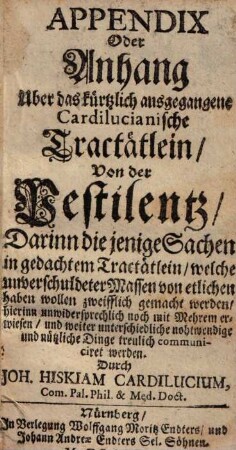 APPENDIX
Oder
Anhang
Uber das kürtzlich ausgegangene
Cardilucianische
Tractätlein/
Von der
Pestilentz/
Darinn die jenige Sachen
in gedachtem Tractätlein/ welche
unverschuldeter Massen von etlichen
haben wollen zweifflich gemacht werden/
hierinn unwidersprechlich noch mit Mehrem er-
wiesen/ und weiter unterschiedliche nohtwendige
und nützliche Dinge treulich communi-
ciret werden.
Durch
JOH. HISKIAM CARDILUCIUM,
Com. Pal. Phil. & Med. Doct.
Nürnberg/
In Verlegung Wolffgang Moritz Endters/ und
Johann Andreæ Endters Sel. Söhnen.